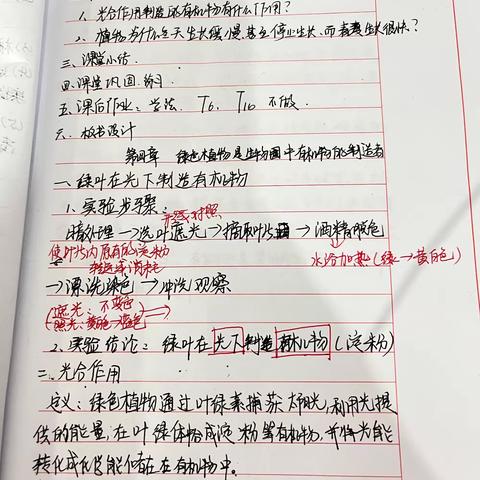 1. 光合作用制造的有机物有什么作用？
2. 植物为什么冬天生长缓慢甚至停止生长，而春夏生长很快？
三、课堂小结
四、课堂巩固练习
五、课后作业：学法 T6、T10 不做.
六、板书设计
第四章 绿色植物是生物圈中有机物的制造者
一、绿叶在光下制造有机物
1. 实验步骤：
形成对照
暗处理→选叶遮光→摘取叶片→酒精脱色
使叶片内原有的淀粉
转运或消耗
水浴加热(绿→黄白色)
→漂洗染色→冲洗观察
遮光：不变色
照光：黄白色→蓝色
2. 实验结论：绿叶在光下制造有机物(淀粉)
二、光合作用
定义：绿色植物通过叶绿素捕获太阳光，利用光提
供的能量，在叶绿体中合成淀粉等有机物，并将光能
转化成化学能储存在有机物中。